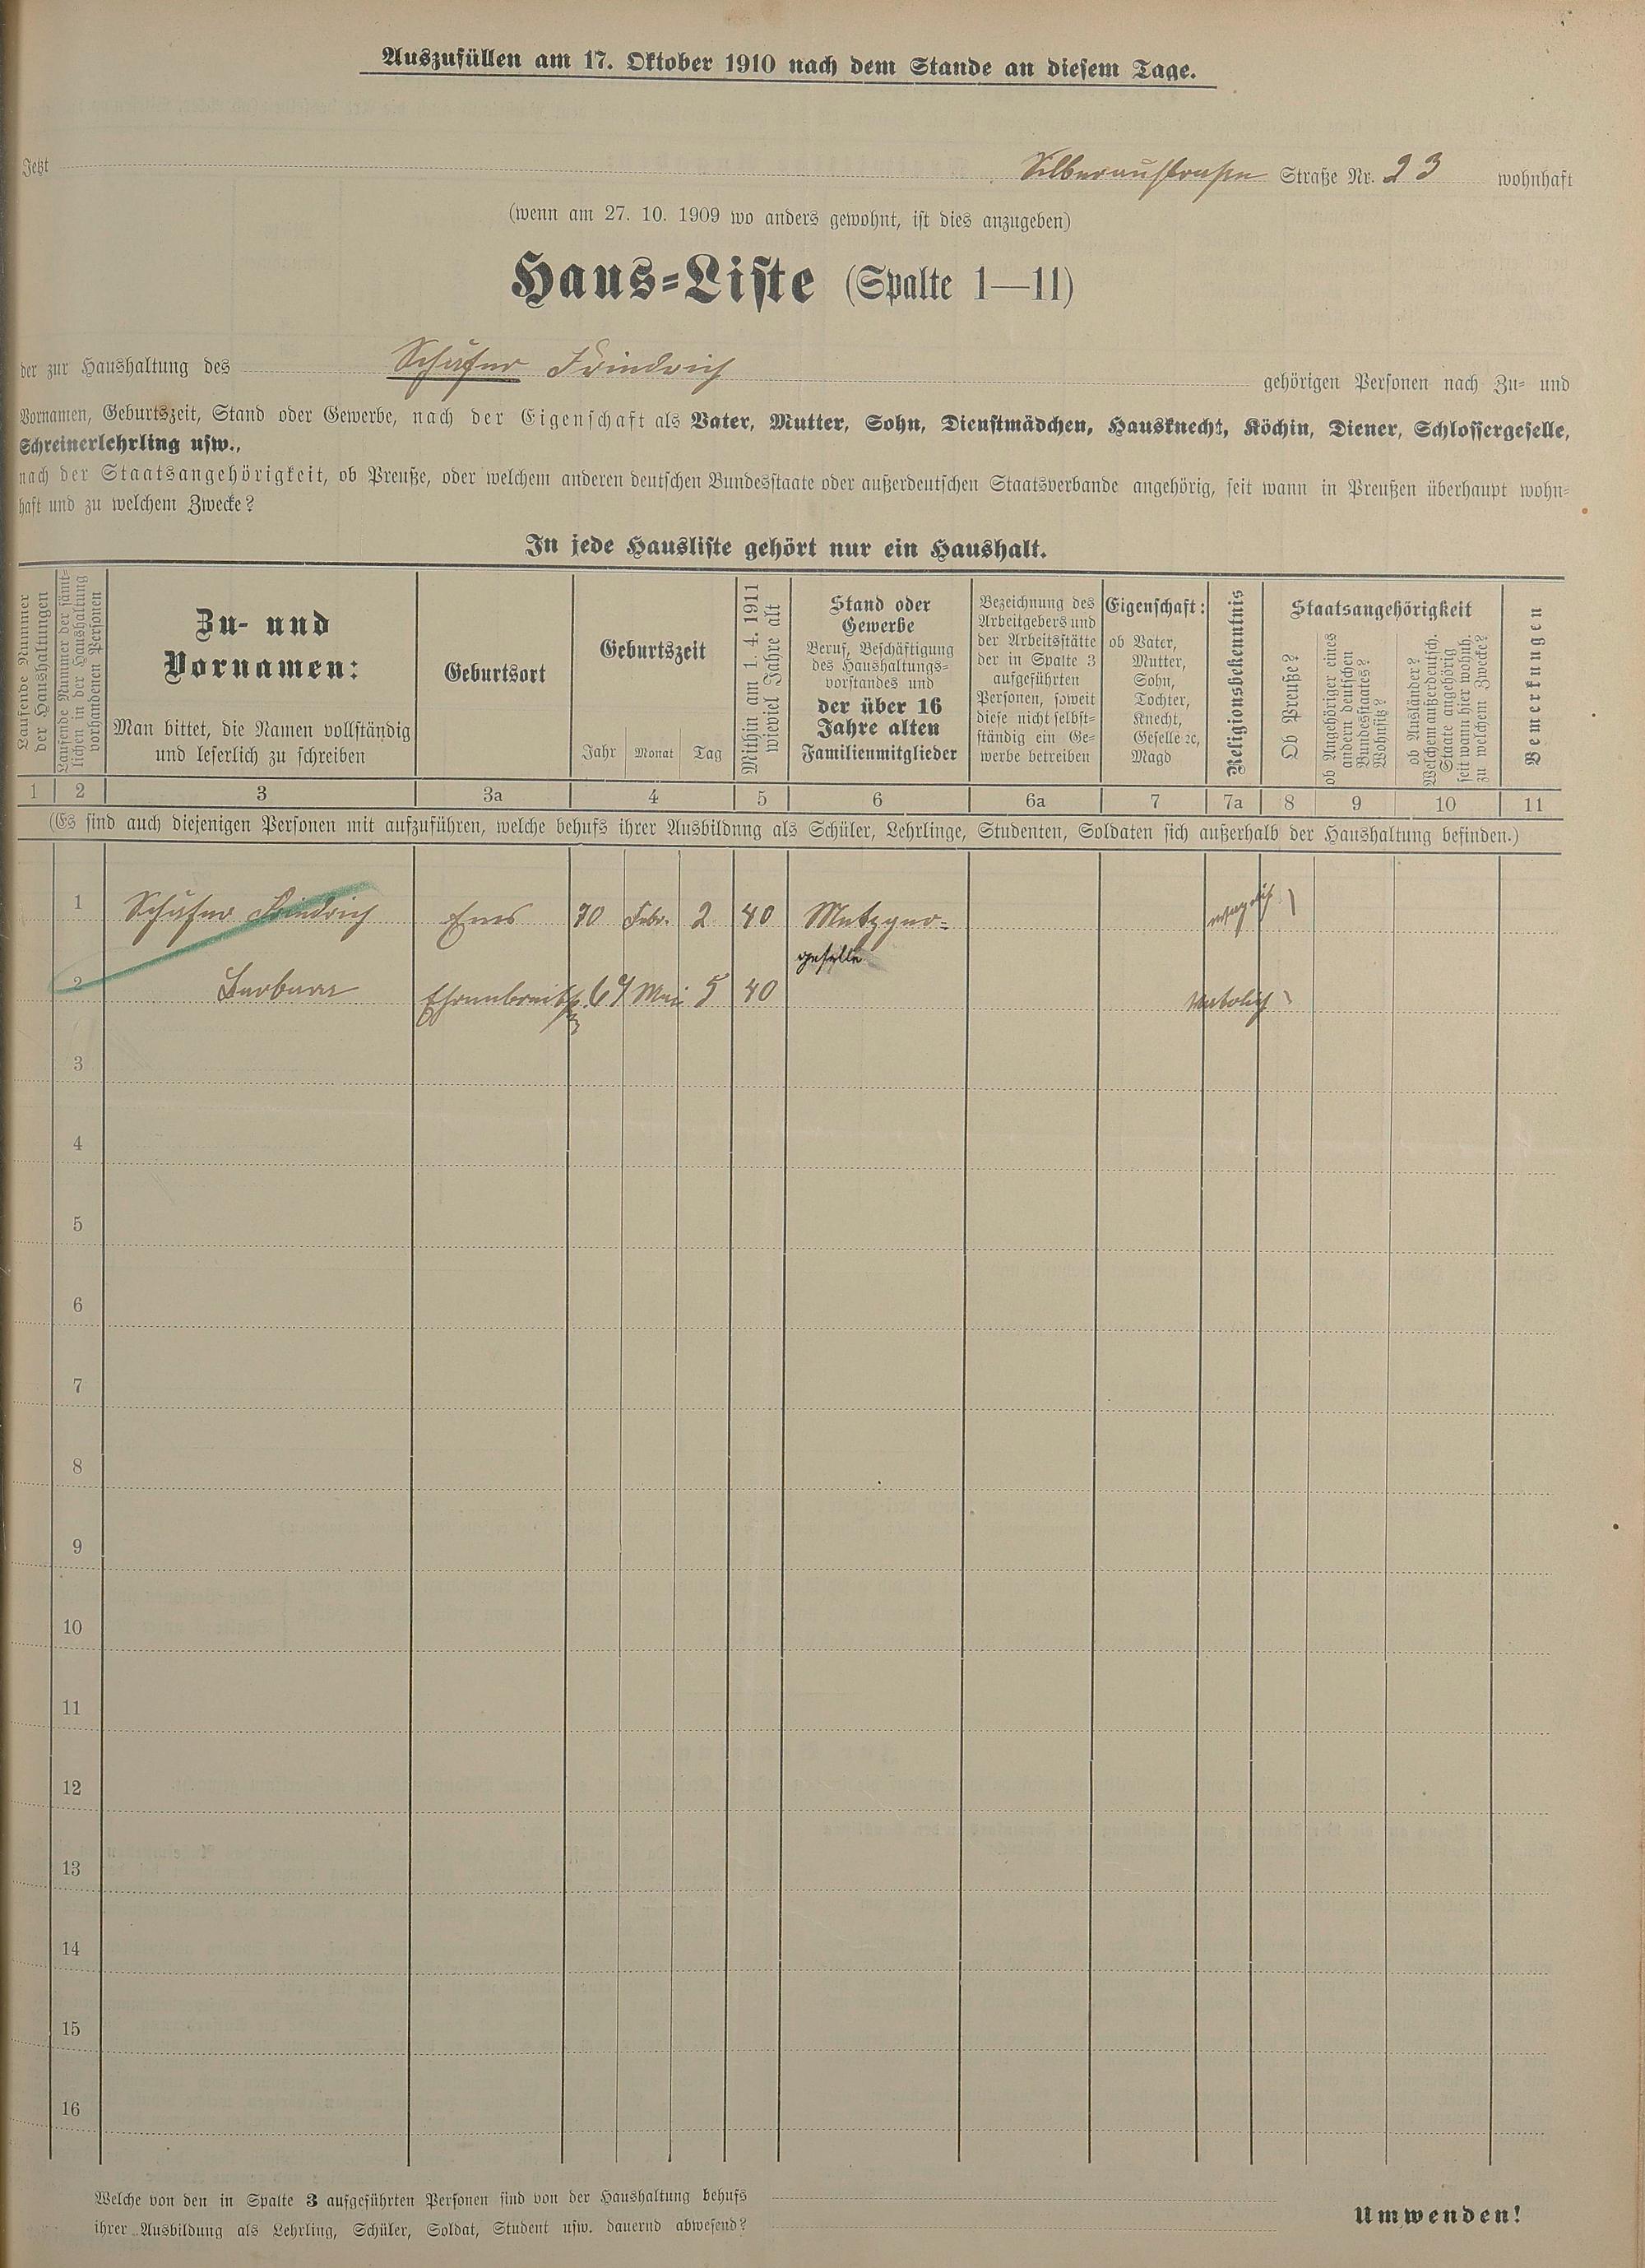 Auszufüllen am 17. Oktober 1910 nach dem Stande an diesem Tage.
Jetzt Silberaustraße Straße Nr. 23 wohnhaft
(wenn am 27. 10. 1909 wo anders gewohnt, ist dies anzugeben)
Haus-Liste (Spalte 1—11)
der zur Haushaltung des Schäfer Friedrich gehörigen Personen nach Zu- und
Vornamen, Geburtszeit, Stand oder Gewerbe, nach der Eigenschaft als Vater, Mutter, Sohn, Dienstmädchen, Hausknecht, Köchin, Diener, Schlossergeselle,
Schreinerlehrling usw.,
nach der Staatsangehörigkeit, ob Preuße, oder welchem anderen deutschen Bundesstaate oder außerdeutschen Staatsverbande angehörig, seit wann in Preußen überhaupt wohn-
haft und zu welchem Zwecke?
In jede Hausliste gehört nur ein Haushalt.
Laufende Nummer
der Haushaltungen
Laufende Nummer der sämt-
lichen in der Haushaltung
vorhandenen Personen
Zu- und
Vornamen:
Man bittet, die Namen vollständig
und leserlich zu schreiben
Geburtsort
Geburtszeit
Jahr Monat Tag
Mithin am 1. 4. 1911
wieviel Jahre alt
Stand oder
Gewerbe
Beruf, Beschäftigung
des Haushaltungs-
vorstandes und
der über 16
Jahre alten
Familienmitglieder
Bezeichnung des
Arbeitgebers und
der Arbeitsstätte
der in Spalte 3
aufgeführten
Personen, soweit
diese nicht selbst-
ständig ein Ge-
werbe betreiben
Eigenschaft:
ob Vater,
Mutter,
Sohn,
Tochter,
Knecht,
Geselle ꝛc,
Magd
Religionsbekenntnis
Staatsangehörigkeit
Ob Preuße?
ob Angehöriger eines
andern deutschen
Bundesstaates?
Wohnsitz?
ob Ausländer?
Welchem außerdeutsch.
Staate angehörig
seit wann hier wohnh.
zu welchem Zwecke?
Bemerkungen
1 2 3 3a 4 5 6 6a 7 7a 8 9 10 11
(Es sind auch diejenigen Personen mit aufzuführen, welche behufs ihrer Ausbildung als Schüler, Lehrlinge, Studenten, Soldaten sich außerhalb der Haushaltung befinden.)
1 Schäfer Friedrich Ems 70 Febr. 2 40 Metzger-
geselle
2 Barbara 69 Mai 5 40 katolisch
3
4
5
6
7
8
9
10
11
12
13
14
15
16
Welche von den in Spalte 3 aufgeführten Personen sind von der Haushaltung behufs
ihrer Ausbildung als Lehrling, Schüler, Soldat, Student usw. dauernd abwesend?
Umwenden!